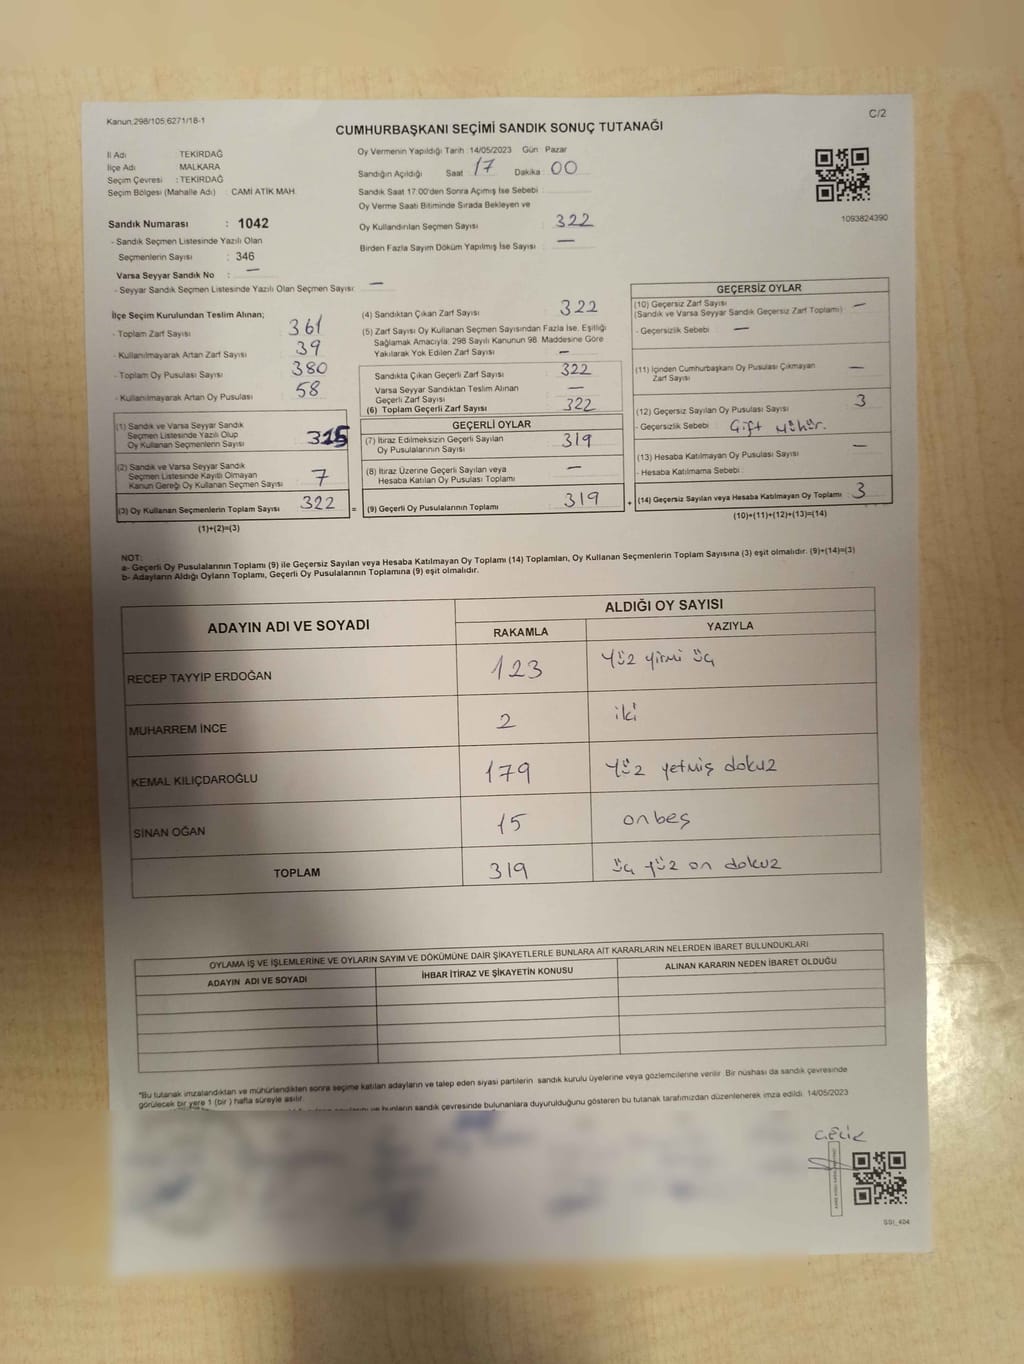 Kanun.298/105.6271/18-1
C/2
CUMHURBAŞKANI SEÇİMİ SANDIK SONUÇ TUTANAĞI
İl Adı TEKİRDAĞ
İlçe Adı MALKARA
Seçim Çevresi : TEKİRDAĞ
Seçim Bölgesi (Mahalle Adı) : CAMİ ATİK MAH.
Sandık Numarası : 1042
- Sandık Seçmen Listesinde Yazılı Olan
Seçmenlerin Sayısı : 346
Varsa Seyyar Sandık No : —
- Seyyar Sandık Seçmen Listesinde Yazılı Olan Seçmen Sayısı: —
Oy Vermenin Yapıldığı Tarih :14/05/2023 Gün : Pazar
Sandığın Açıldığı Saat 17 Dakika : 00
Sandık Saat 17:00'den Sonra Açımış İse Sebebi :
Oy Verme Saati Bitiminde Sırada Bekleyen ve
Oy Kullandırılan Seçmen Sayısı : 322
Birden Fazla Sayım Döküm Yapılmış İse Sayısı : —
1093824390
İlçe Seçim Kurulundan Teslim Alınan;
- Toplam Zarf Sayısı : 361
- Kullanılmayarak Artan Zarf Sayısı : 39
- Toplam Oy Pusulası Sayısı : 380
- Kullanılmayarak Artan Oy Pusulası : 58
(1) Sandık ve Varsa Seyyar Sandık
Seçmen Listesinde Yazılı Olup
Oy Kullanan Seçmenlerin Sayısı 315
(2) Sandık ve Varsa Seyyar Sandık
Seçmen Listesinde Kayıtlı Olmayan
Kanun Gereği Oy Kullanan Seçmen Sayısı 7
(3) Oy Kullanan Seçmenlerin Toplam Sayısı 322 =
(1)+(2)=(3)
(4) Sandıktan Çıkan Zarf Sayısı : 322
(5) Zarf Sayısı Oy Kullanan Seçmen Sayısından Fazla İse, Eşitliği
Sağlamak Amacıyla, 298 Sayılı Kanunun 98. Maddesine Göre
Yakılarak Yok Edilen Zarf Sayısı : —
Sandıkta Çıkan Geçerli Zarf Sayısı : 322
Varsa Seyyar Sandıktan Teslim Alınan
Geçerli Zarf Sayısı : —
(6) Toplam Geçerli Zarf Sayısı : 322
GEÇERLİ OYLAR
(7) İtiraz Edilmeksizin Geçerli Sayılan
Oy Pusulalarının Sayısı : 319
(8) İtiraz Üzerine Geçerli Sayılan veya
Hesaba Katılan Oy Pusulası Toplamı : —
(9) Geçerli Oy Pusulalarının Toplamı : 319 +
GEÇERSİZ OYLAR
(10) Geçersiz Zarf Sayısı
(Sandık ve Varsa Seyyar Sandık Geçersiz Zarf Toplamı) : —
- Geçersizlik Sebebi : —
(11) İçinden Cumhurbaşkanı Oy Pusulası Çıkmayan
Zarf Sayısı : —
(12) Geçersiz Sayılan Oy Pusulası Sayısı : 3
- Geçersizlik Sebebi : Çift mühür.
(13) Hesaba Katılmayan Oy Pusulası Sayısı : —
- Hesaba Katılmama Sebebi :
(14) Geçersiz Sayılan veya Hesaba Katılmayan Oy Toplamı : 3
(10)+(11)+(12)+(13)=(14)
NOT:
a- Geçerli Oy Pusulalarının Toplamı (9) ile Geçersiz Sayılan veya Hesaba Katılmayan Oy Toplamı (14) Toplamları, Oy Kullanan Seçmenlerin Toplam Sayısına (3) eşit olmalıdır. (9)+(14)=(3)
b- Adayların Aldığı Oyların Toplamı, Geçerli Oy Pusulalarının Toplamına (9) eşit olmalıdır.
ADAYIN ADI VE SOYADI ALDIĞI OY SAYISI
RAKAMLA YAZIYLA
RECEP TAYYIP ERDOĞAN 123 Yüz yirmi üç
MUHARREM İNCE 2 iki
KEMAL KILIÇDAROĞLU 179 Yüz yetmiş dokuz
SİNAN OĞAN 15 onbeş
TOPLAM 319 üç yüz on dokuz
OYLAMA İŞ VE İŞLEMLERİNE VE OYLARIN SAYIM VE DÖKÜMÜNE DAİR ŞİKAYETLERLE BUNLARA AİT KARARLARIN NELERDEN İBARET BULUNDUKLARI
ADAYIN ADI VE SOYADI İHBAR İTİRAZ VE ŞİKAYETİN KONUSU ALINAN KARARIN NEDEN İBARET OLDUĞU
"Bu tutanak imzalandıktan ve mühürlendikten sonra seçime katılan adayların ve talep eden siyasi partilerin sandık kurulu üyelerine veya gözlemcilerine verilir. Bir nüshası da sandık çevresinde
görülecek bir yere 1 (bir ) hafta süreyle asılır.
sandık çevresinde bulunanlara duyurulduğunu gösteren bu tutanak tarafımızdan düzenlenerek imza edildi. 14/05/2023
ÇELİK
SSI_404